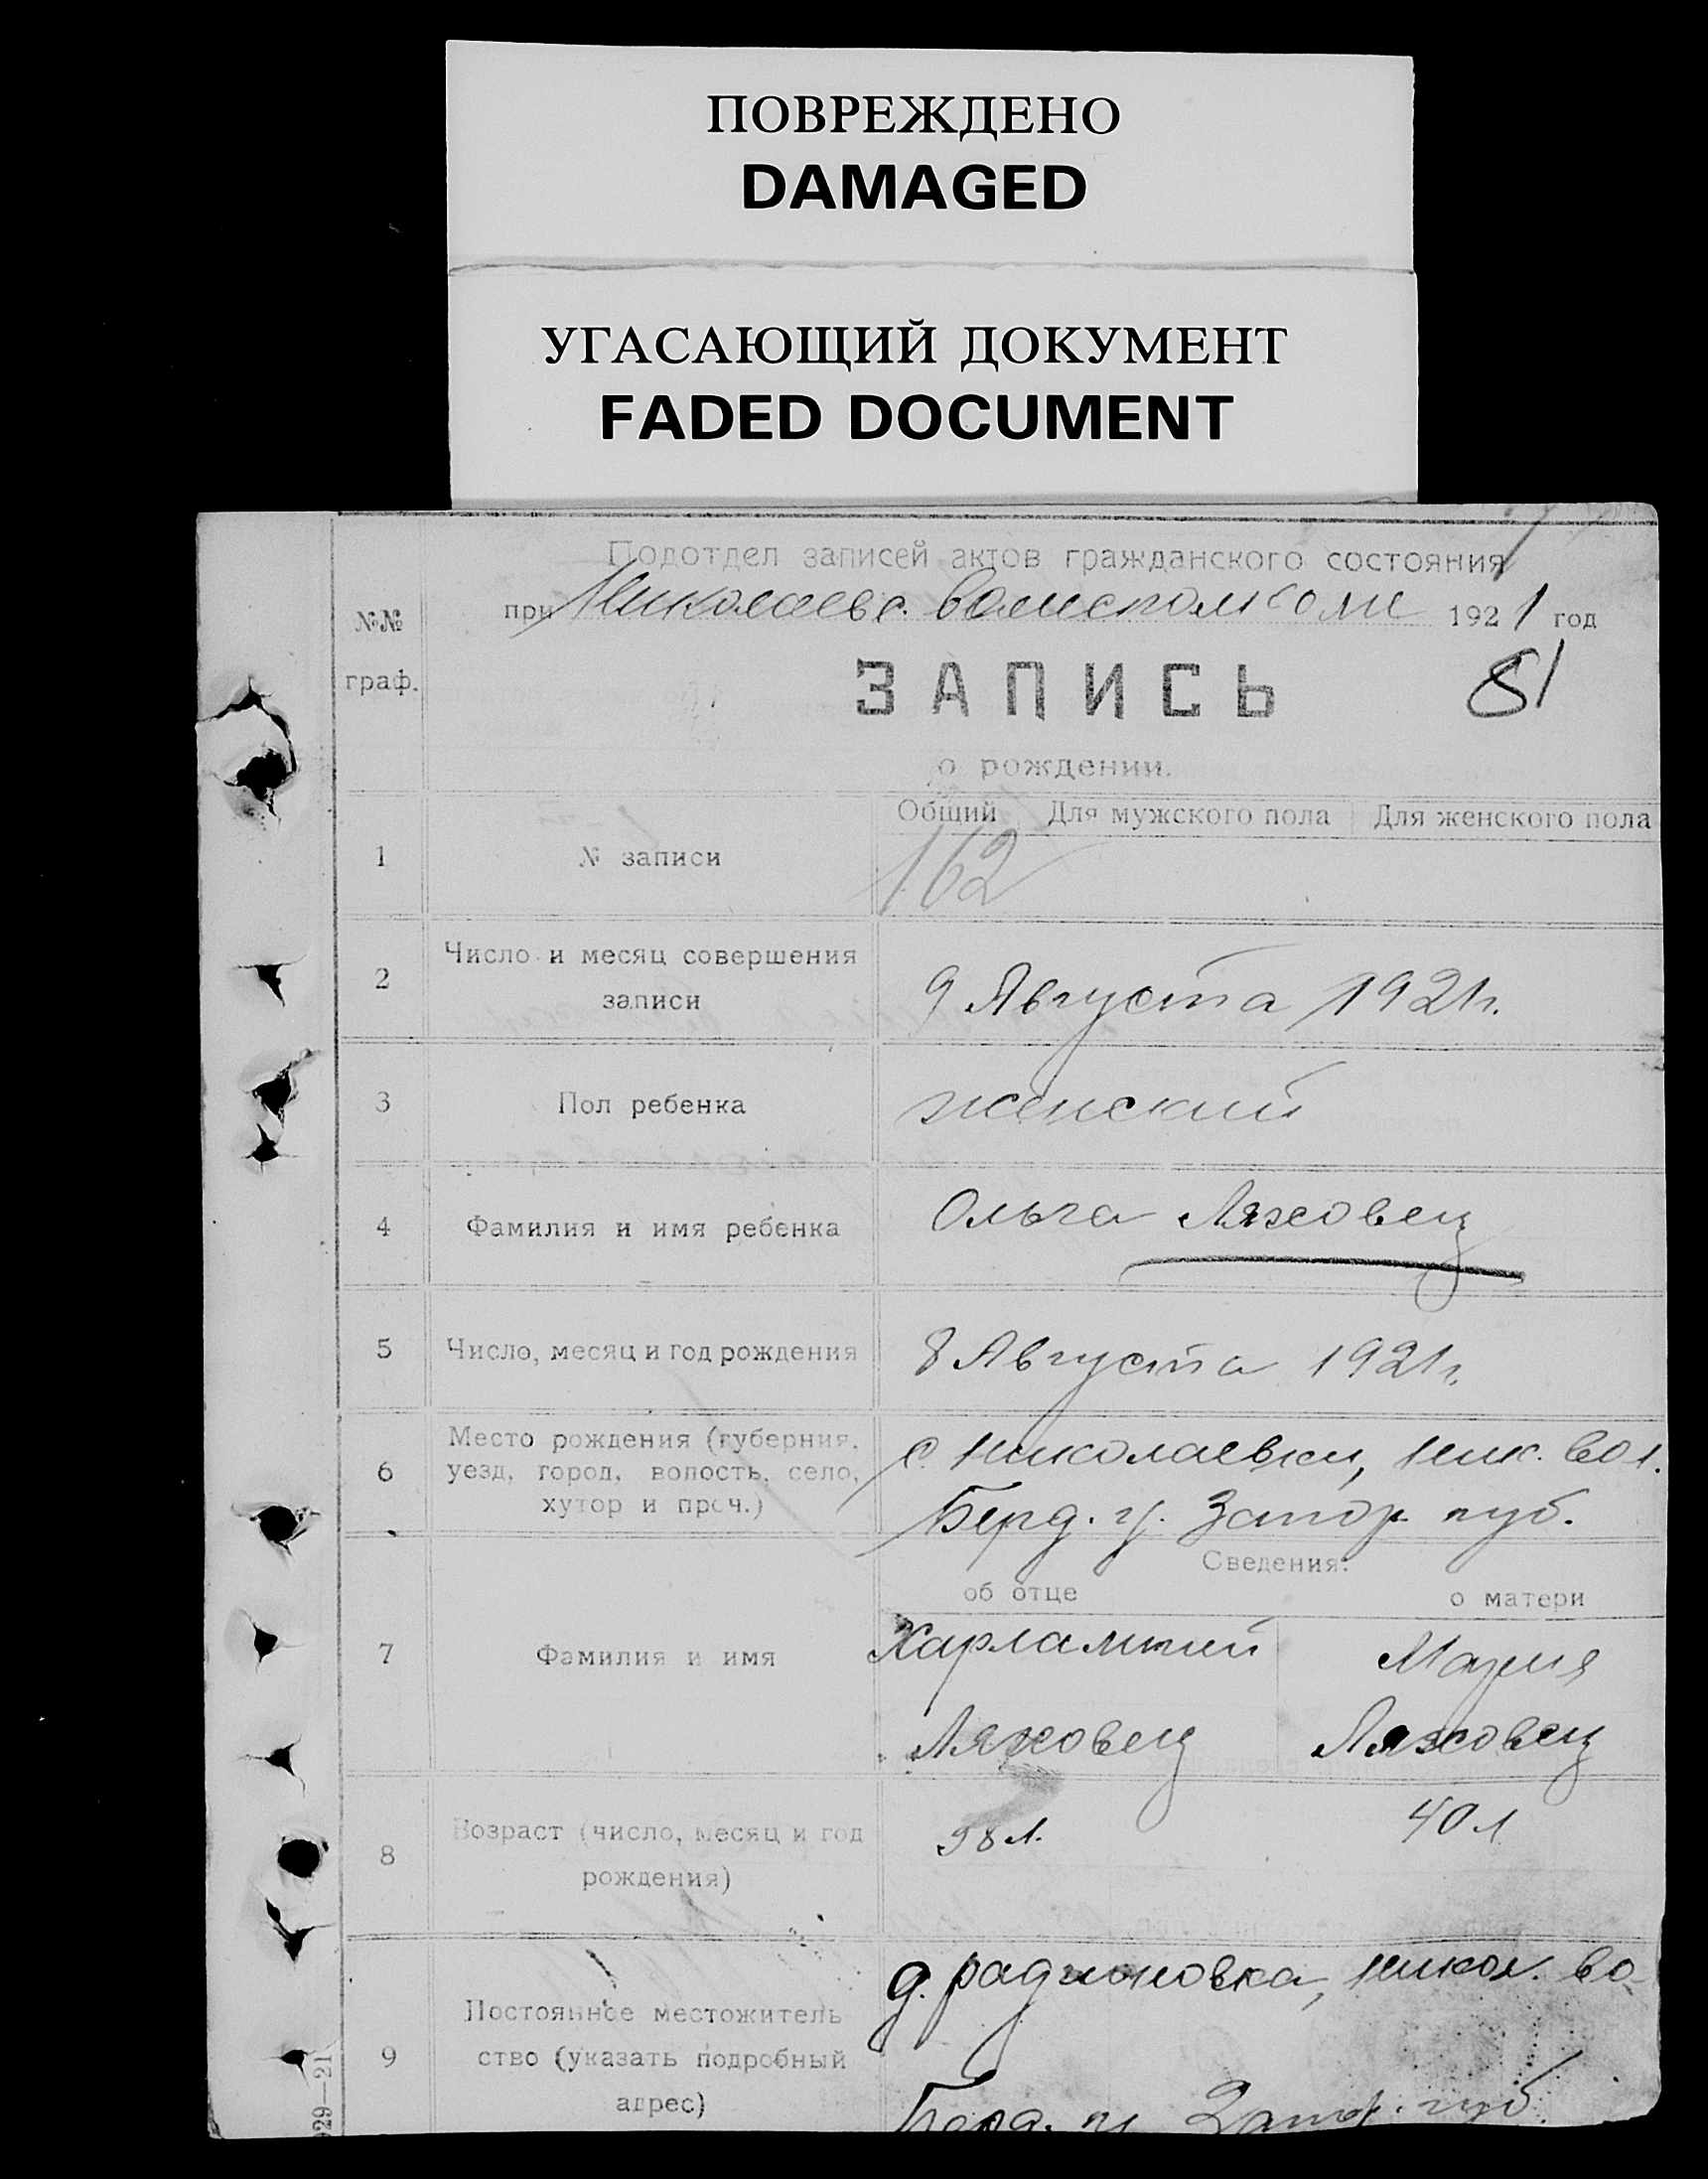 ПОВРЕЖДЕНО
DAMAGED
УГАСАЮЩИЙ ДОКУМЕНТ
FADED DOCUMENT
Подотдел записей актов гражданского состояния
при Николаевс. волисполкоме 1921 год
№№
граф.
ЗАПИСЬ
81
о рождении.
Общий Для мужского пола Для женского пола
1 № записи 162
Число и месяц совершения
2 записи 9 Августа 1921 г.
3 Пол ребенка женский
4 Фамилия и имя ребенка Ольга Ляховец
5 Число, месяц и год рождения 8 Августа 1921 г.
Место рождения (губерния, с. Николаевки, Ник. вол.
6 уезд, город, волость, село,
хутор и проч.) Берд. у. Запор. губ.
Сведения:
об отце о матери
Харлампий Мария
7 Фамилия и имя
Ляховец Ляховец
Возраст (число, месяц и год 38 л. 40 л
8 рождения)
д. Радионовка, Никол. во-
Постоянное местожитель
9 ство (указать подробный
адрес) Берд. у. Запор. губ.
929—21